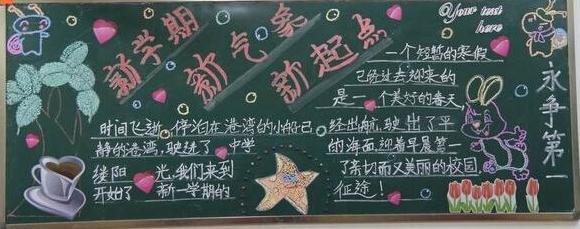 新学期
新气象
新起点
Your text
here
一个短暂的寒假
已经过去迎来的
是一个美好的春天,
时间飞逝,停泊在港湾的小船已经出航,驶出了平
静的港湾,驶进了 中学 的海面,迎着早晨第一
缕阳 光,我们来到了亲切而又美丽的校园
开始了 新一学期的征途!
永争第一